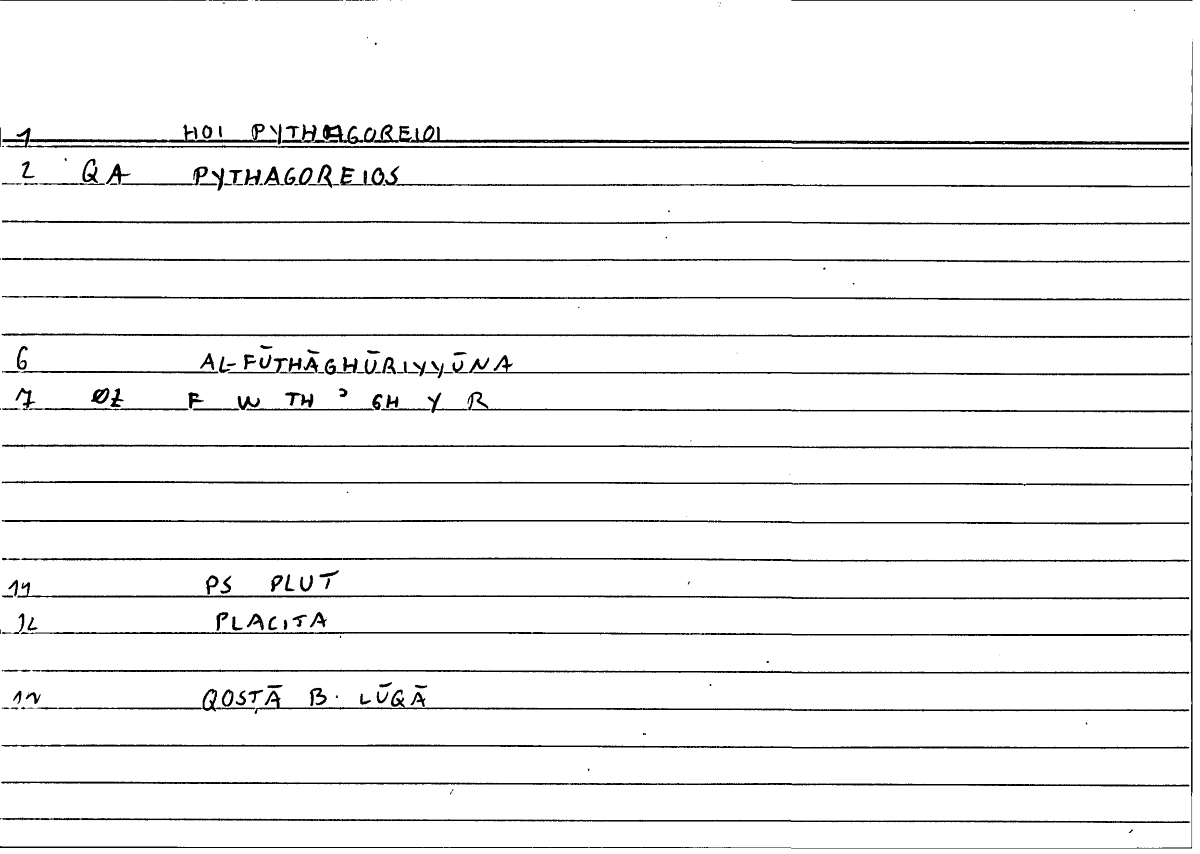 1 HOI PYTHAGOREIOI
2 QA PYTHAGOREIOS
6 AL-FŪTHĀGHŪRIYYŪNA
7 ØZ F W TH ʾ GH Y R
11 PS PLUT
12 PLACITA
QOSṬĀ B. LŪQĀ